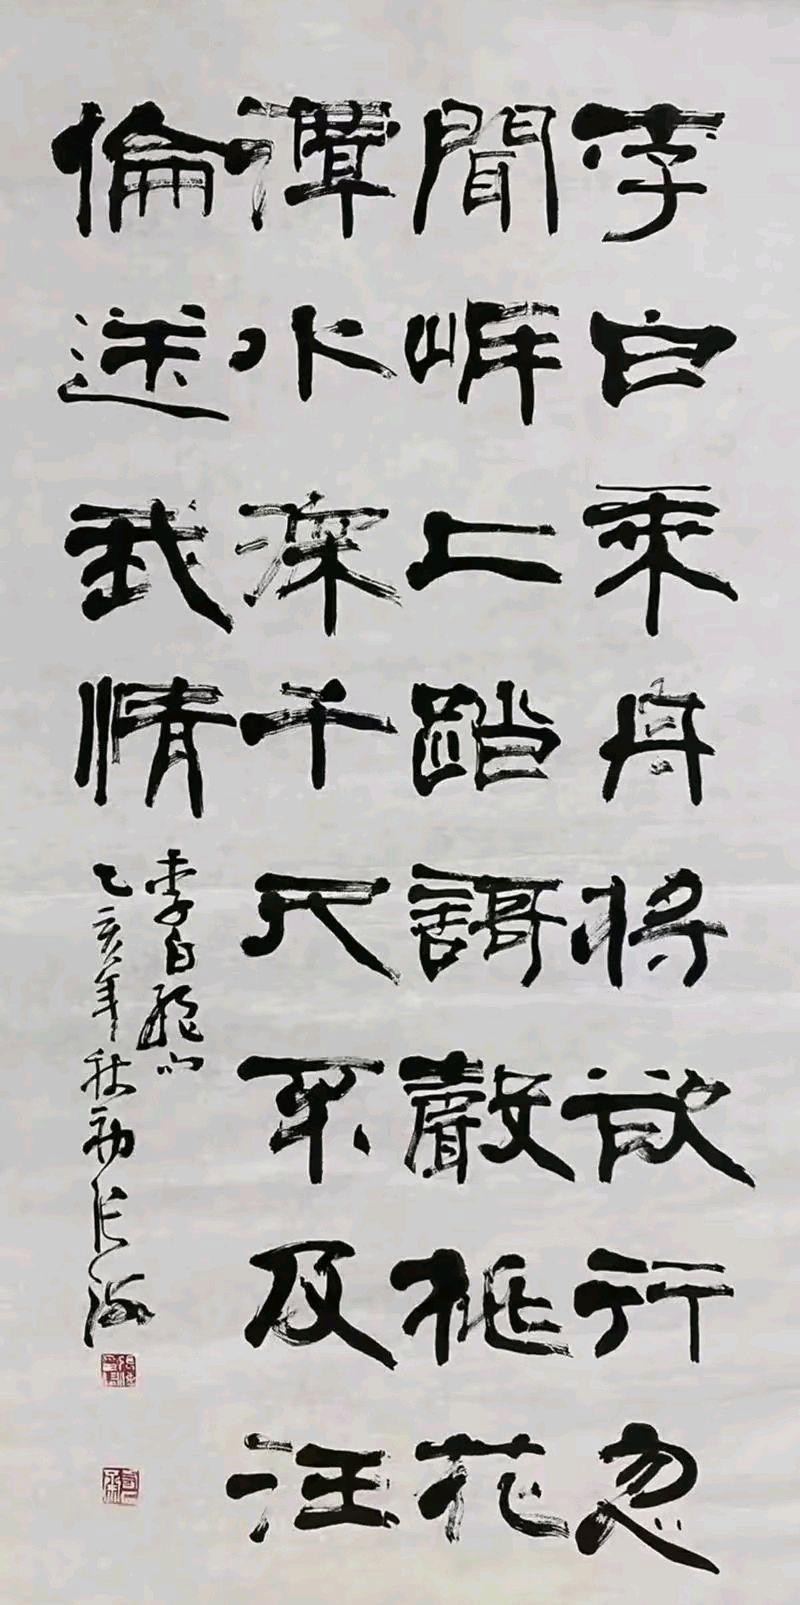 李白乘舟將欲行忽
聞岸上踏謌聲桃花
潭水深千尺不及汪
倫送我情
李白
乙亥年秋初張海